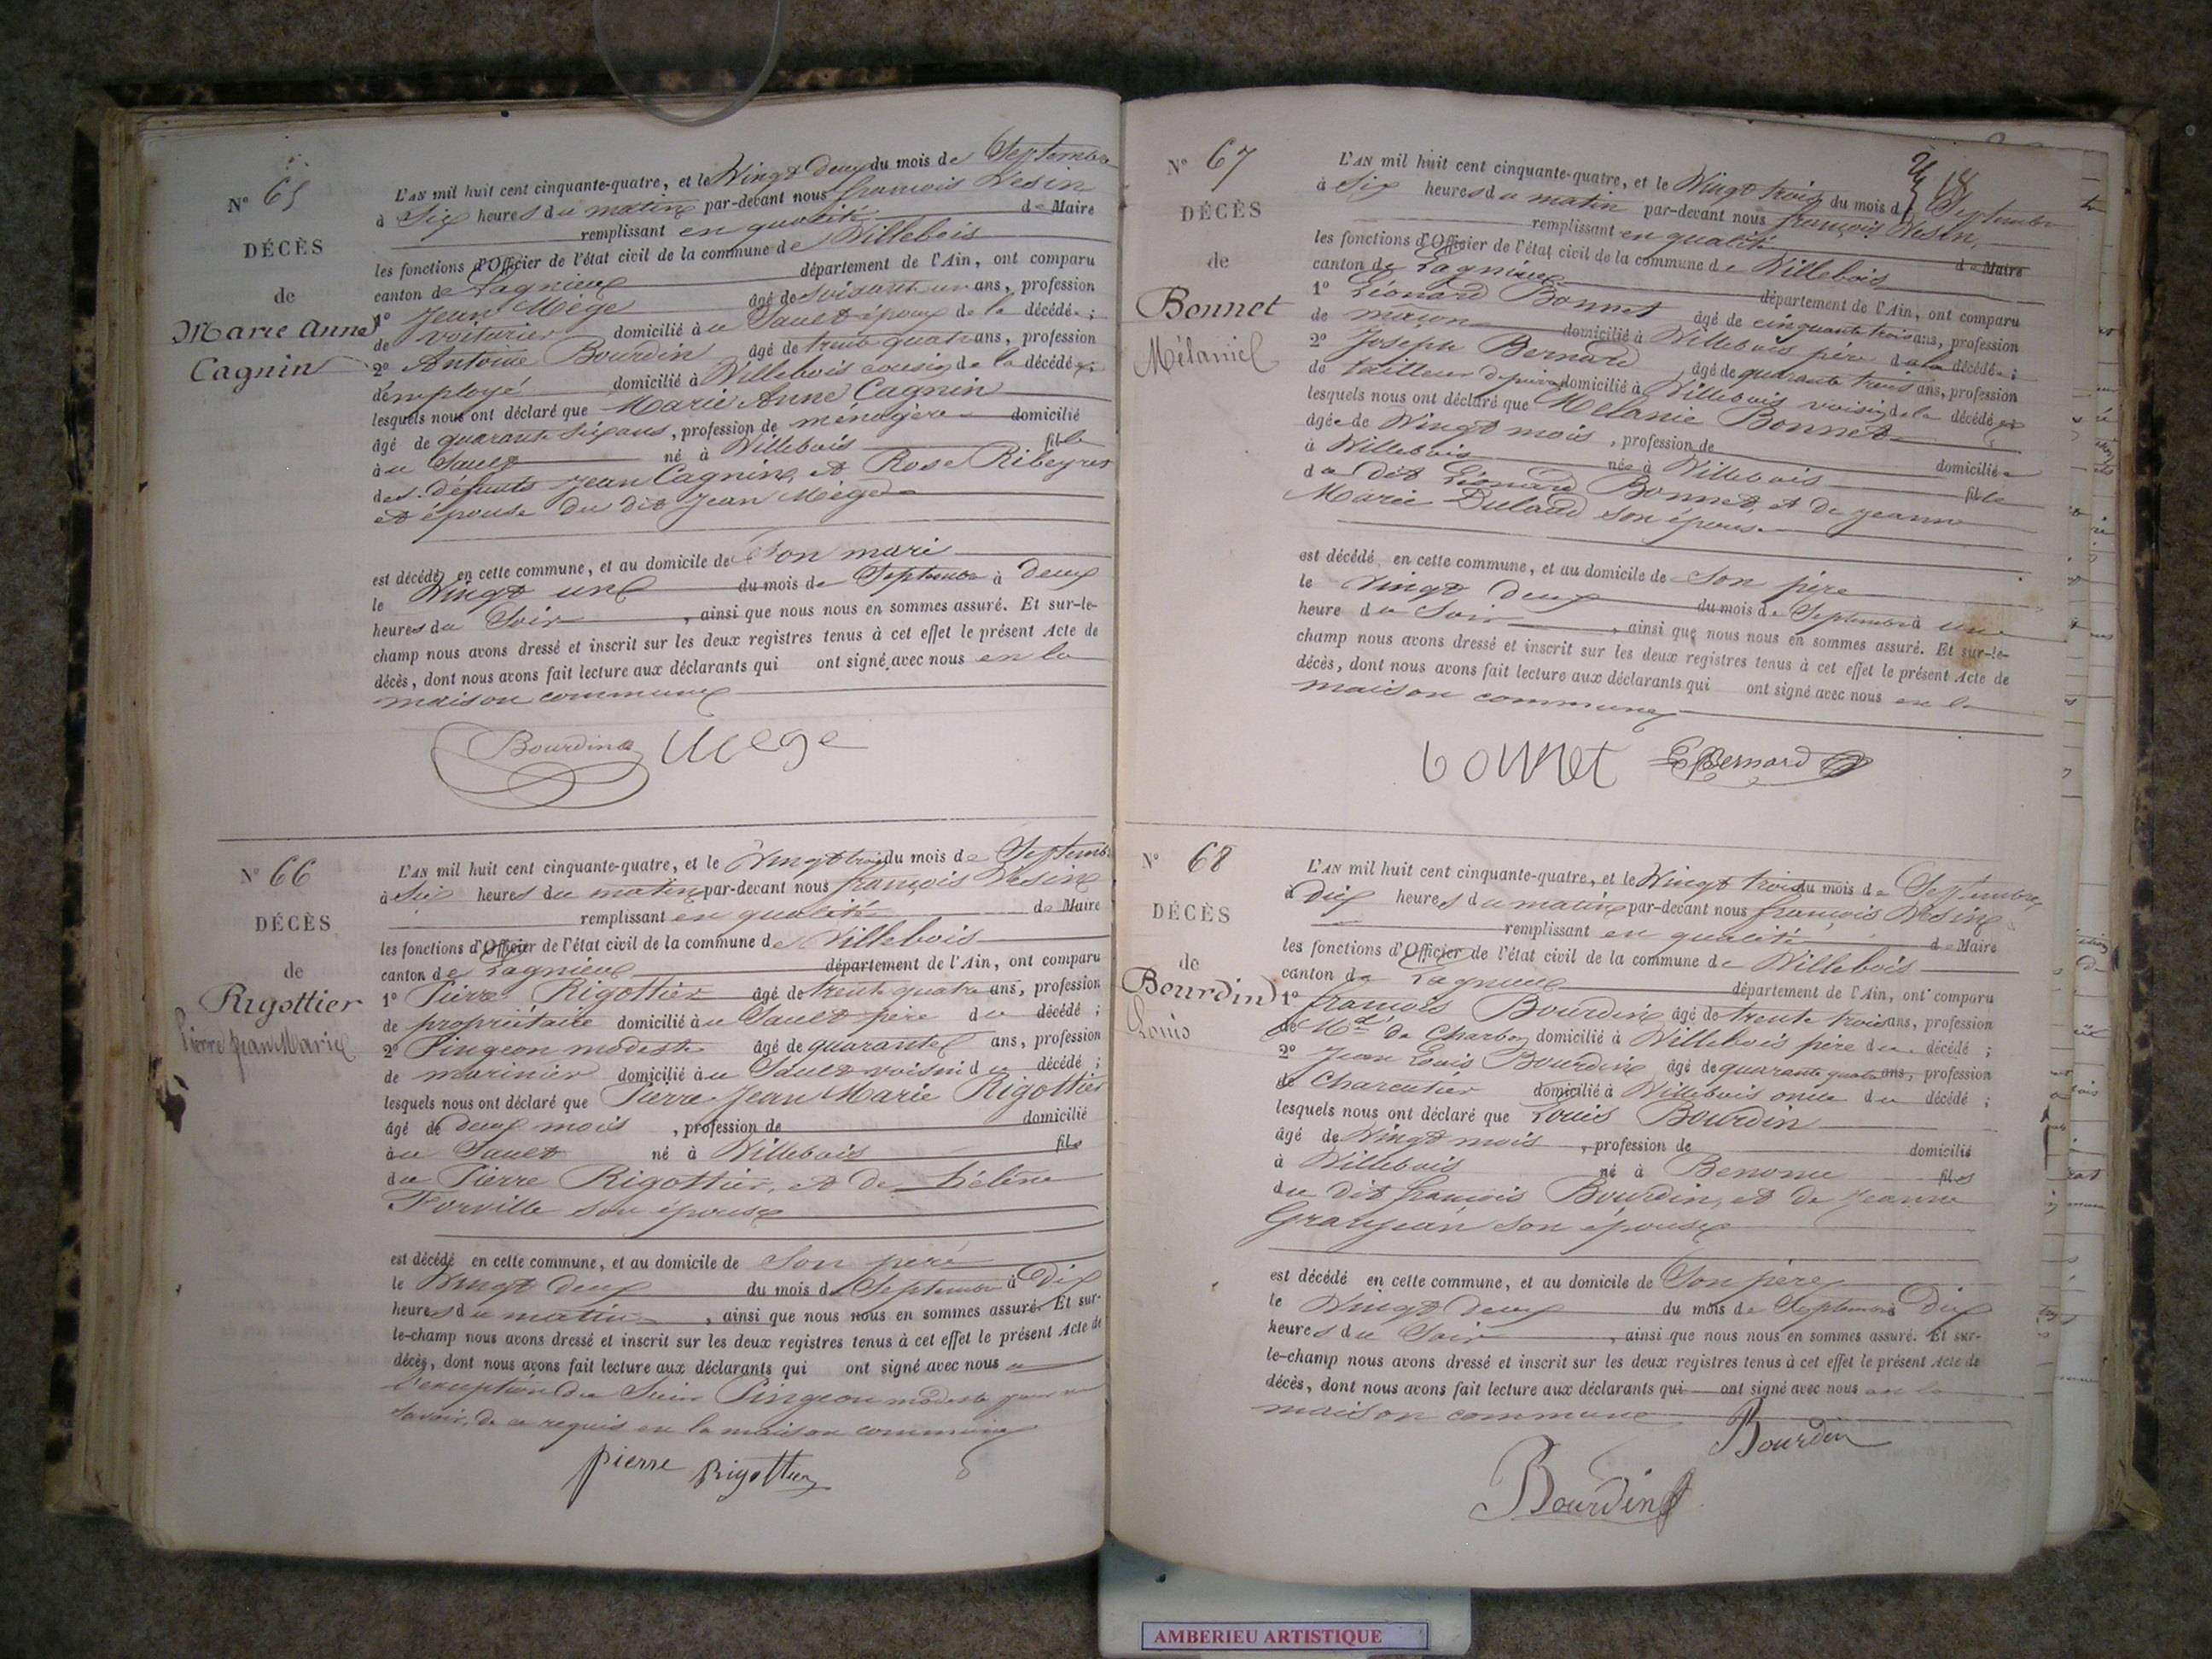 N° 65
DÉCÈS
de
Marie Anne
Cagnin
L'AN mil huit cent cinquante-quatre, et le Vingt deux du mois de Septembre
à Six heures du matin par-devant nous françois Vesin
remplissant en qualité de Maire
les fonctions d'Officier de l'état civil de la commune de Villebois
canton de Lagnieux département de l'Ain, ont comparu
1° Jean Mège âgé de soixante un ans, profession
de voiturier domicilié au Sault époux de la décédée ;
2° Antoine Bourdin âgé de trente quatre ans, profession
d'employé domicilié à Villebois cousin de la décédée ;
lesquels nous ont déclaré que Marie Anne Cagnin
âgé de quarante six ans, profession de ménagère domicilié
au Sault né à Villebois fille
des défunts Jean Cagnin, et Rose Ribeyres
et épouse du dit Jean Mège
est décédé en cette commune, et au domicile de Son mari
le Vingt un du mois de Septembre à deux
heures du Soir, ainsi que nous nous en sommes assuré. Et sur-le-
champ nous avons dressé et inscrit sur les deux registres tenus à cet effet le présent Acte de
décès, dont nous avons fait lecture aux déclarants qui ont signé avec nous en la
maison commune
Bourdin Mège
N° 66
DÉCÈS
de
Rigottier
Pierre Jean Marie
L'AN mil huit cent cinquante-quatre, et le Vingt trois du mois de Septembre
à Six heures du matin par-devant nous françois Vesin
remplissant en qualité de Maire
les fonctions d'Officier de l'état civil de la commune de Villebois
canton de Lagnieux département de l'Ain, ont comparu
1° Pierre Rigottier âgé de trente quatre ans, profession
de propriétaire domicilié au Sault père du décédé ;
2° Pingeon modeste âgé de quarante ans, profession
de marinier domicilié au Sault voisin du décédé ;
lesquels nous ont déclaré que Pierre Jean Marie Rigottier
âgé de deux mois, profession de domicilié
au Sault né à Villebois fils
du Pierre Rigottier, et de Hélène
Forville son épouse
est décédé en cette commune, et au domicile de Son père
le Vingt deux du mois de Septembre à Dix
heures du matin, ainsi que nous nous en sommes assuré. Et sur-
le-champ nous avons dressé et inscrit sur les deux registres tenus à cet effet le présent Acte de
décès, dont nous avons fait lecture aux déclarants qui ont signé avec nous a
l'exception du Sieur Pingeon modeste pour ne
Savoir, de ce requis en la maison commune
pierre Rigottier
N° 67
DÉCÈS
de
Bonnet
Mélanie
L'AN mil huit cent cinquante-quatre, et le Vingt trois du mois de Septembre
à Six heures du matin par-devant nous françois Vesin,
remplissant en qualité de Maire
les fonctions d'Officier de l'état civil de la commune de Villebois
canton de Lagnieux département de l'Ain, ont comparu
1° Léonard Bonnet âgé de cinquante trois ans, profession
de maçon domicilié à Villebois père de la décédée ;
2° Joseph Bernard âgé de quarante trois ans, profession
de tailleur de pierre domicilié à Villebois voisin de la décédée
lesquels nous ont déclaré que Mélanie Bonnet
âgée de Vingt mois, profession de domiciliée
à Villebois née à Villebois fille
du dit Léonard Bonnet, et de jeanne
Marie Dulaud son épouse
est décédé en cette commune, et au domicile de Son père
le Vingt deux du mois de Septembre à une
heure du Soir, ainsi que nous nous en sommes assuré. Et sur-le-
champ nous avons dressé et inscrit sur les deux registres tenus à cet effet le présent Acte de
décès, dont nous avons fait lecture aux déclarants qui ont signé avec nous en la
maison commune
bonnet Bernard
N° 68
DÉCÈS
de
Bourdin
Louis
L'AN mil huit cent cinquante-quatre, et le Vingt trois du mois de Septembre
à Dix heures du matin par-devant nous françois Vesin
remplissant en qualité de Maire
les fonctions d'Officier de l'état civil de la commune de Villebois
canton de Lagnieux département de l'Ain, ont comparu
1° françois Bourdin âgé de trente trois ans, profession
de Md de Charbon domicilié à Villebois père du décédé ;
2° Jean Louis Bourdin âgé de quarante quatre ans, profession
de Charcutier domicilié à Villebois oncle du décédé ;
lesquels nous ont déclaré que Louis Bourdin
âgé de Vingt mois, profession de domicilié
à Villebois né à Benonce fils
du dit françois Bourdin, et de Jeanne
Granjean son épouse
est décédé en cette commune, et au domicile de Son père
le Vingt deux du mois de Septembre à Dix
heures du Soir, ainsi que nous nous en sommes assuré. Et sur-
le-champ nous avons dressé et inscrit sur les deux registres tenus à cet effet le présent Acte de
décès, dont nous avons fait lecture aux déclarants qui ont signé avec nous en la
maison commune
Bourdin
Bourdin
AMBERIEU ARTISTIQUE